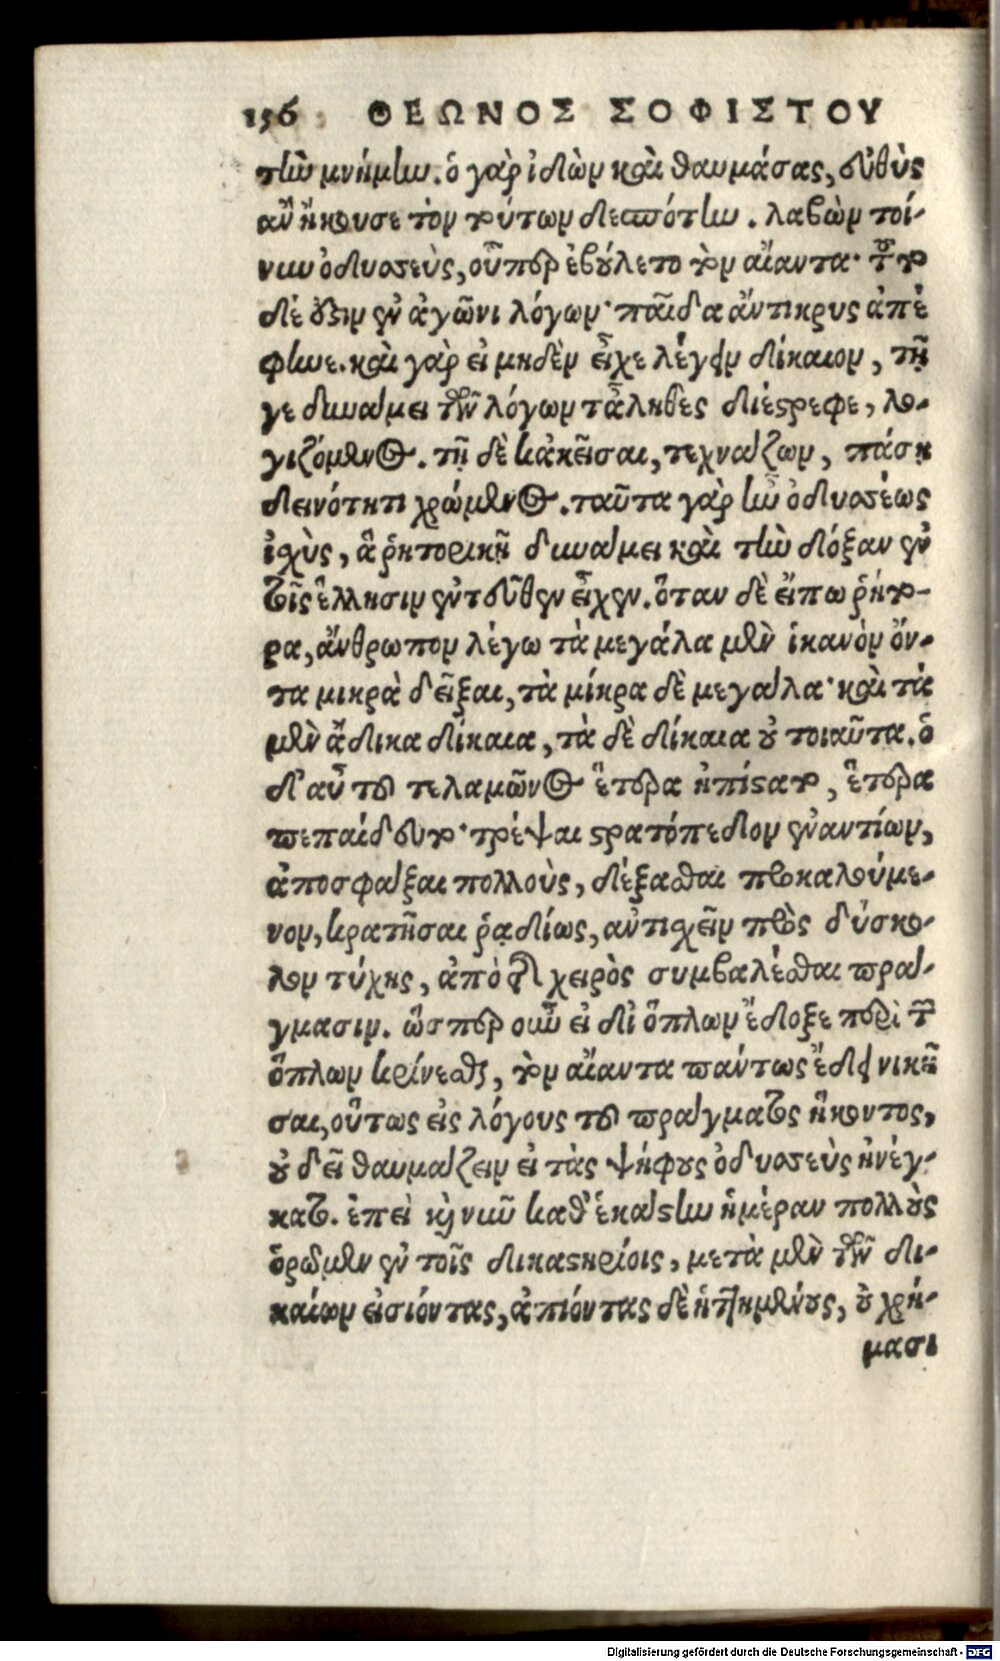 156 ΘΕΩΝΟΣ ΣΟΦΙΣΤΟΥ
τὴν μνήμην. ὁ γὰρ ἰδὼν καὶ θαυμάσας, εὐθὺς
ἂν ἤκουσε τὸν τούτων δεσπότην. λαβὼν τοί-
νυν ὀδυσσεὺς, οὗπερ ἐβούλετο τὸν αἴαντα·
δέ ἐν ἀγῶνι λόγων· παῖδα ἄντικρυς ἀπέ
φηνε. καὶ γὰρ εἰ μηδὲν εἶχε λέγειν δίκαιον, τῇ
γε δυνάμει τῶν λόγων τἆληθες διέστρεφε, λο-
γιζόμενος. τῇ δὲ κἀκεῖσαι, τεχνάζων, πάσῃ
δεινότητι χρώμενος. ταῦτα γὰρ ἦν ὀδυσσέως
ἰσχὺς, ἃ ῥητορικῇ δυνάμει καὶ τὴν δόξαν ἐν
τοῖς ἕλλησιν ἐντεῦθεν εἶχεν. ὅταν δὲ εἴπω ῥήτο-
ρα, ἄνθρωπον λέγω τὰ μεγάλα μὲν ἱκανὸν ὄν-
τα μικρὰ δεῖξαι, τὰ μίκρα δὲ μεγάλα· καὶ τὰ
μὲν ἄδικα δίκαια, τὰ δὲ δίκαια οὐ τοιαῦτα. ὁ
δ' αὖ τοῦ τελαμῶνος ἕτερα ἠπίστατο, ἕτερα
πεπαίδευτο· τρέψαι στρατόπεδον ἐναντίων,
ἀποσφάξαι πολλοὺς, δέξασθαι προκαλούμε-
νον, κρατῆσαι ῥᾳδίως, ἀντισχεῖν πρὸς δύσκο-
λον τύχης, ἀπὸ τῆς χειρὸς συμβαλέσθαι πρά-
γμασιν. ὥσπερ οὖν εἰ δι ὅπλων ἔδοξε περὶ τῶν
ὅπλων κρίνεσθαι, τὸν αἴαντα πάντως ἔδει νικῆ
σαι, οὕτως εἰς λόγους τοῦ πράγματος ἥκοντος,
οὐ δεῖ θαυμάζειν εἰ τὰς ψήφους ὀδυσσεὺς ἠνέγ-
κατο. ἐπεὶ καὶ νῦν καθ' ἑκάστην ἡμέραν πολλοὺς
ὁρῶμεν ἐν τοῖς δικαστηρίοις, μετὰ μὲν τῶν δι-
καίων εἰσιόντας, ἀπιόντας δὲ ἡττημένους, οὐ χρή-
μασι
Digitalisierung gefördert durch die Deutsche Forschungsgemeinschaft - DFG